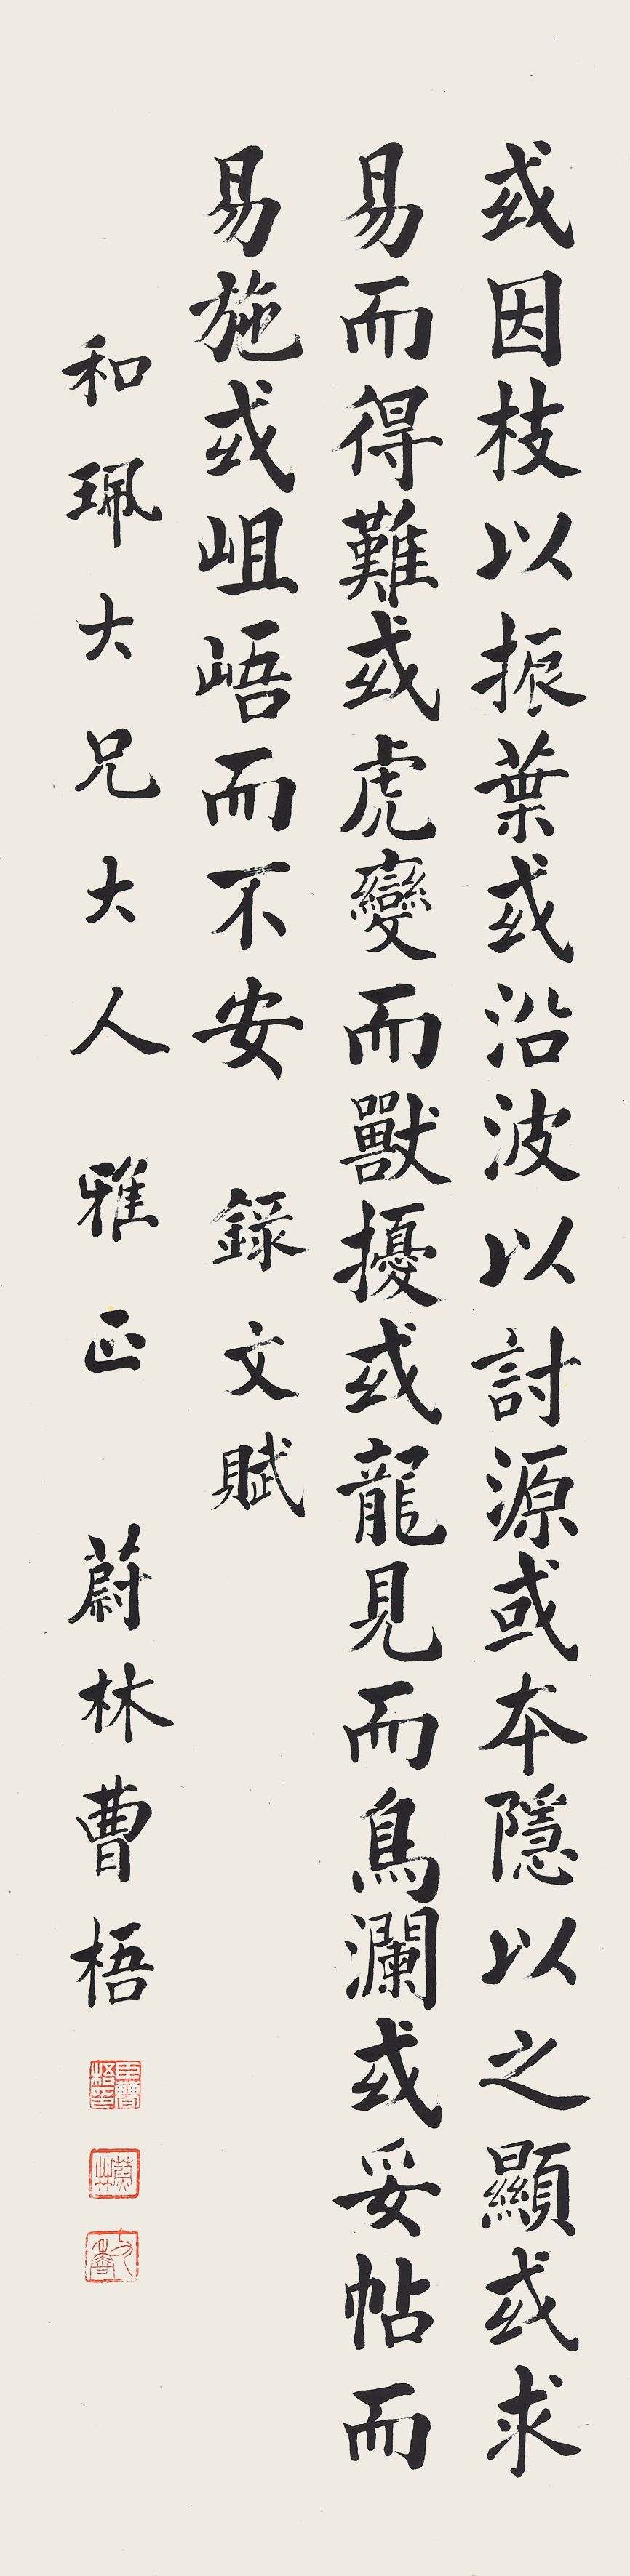 或因枝以振葉或沿波以討源或本隱以之顯或求
易而得難或虎變而獸擾或龍見而鳥瀾或妥帖而
易施或岨峿而不安 錄文賦
和珮大兄大人 雅正 蔚林曹梧